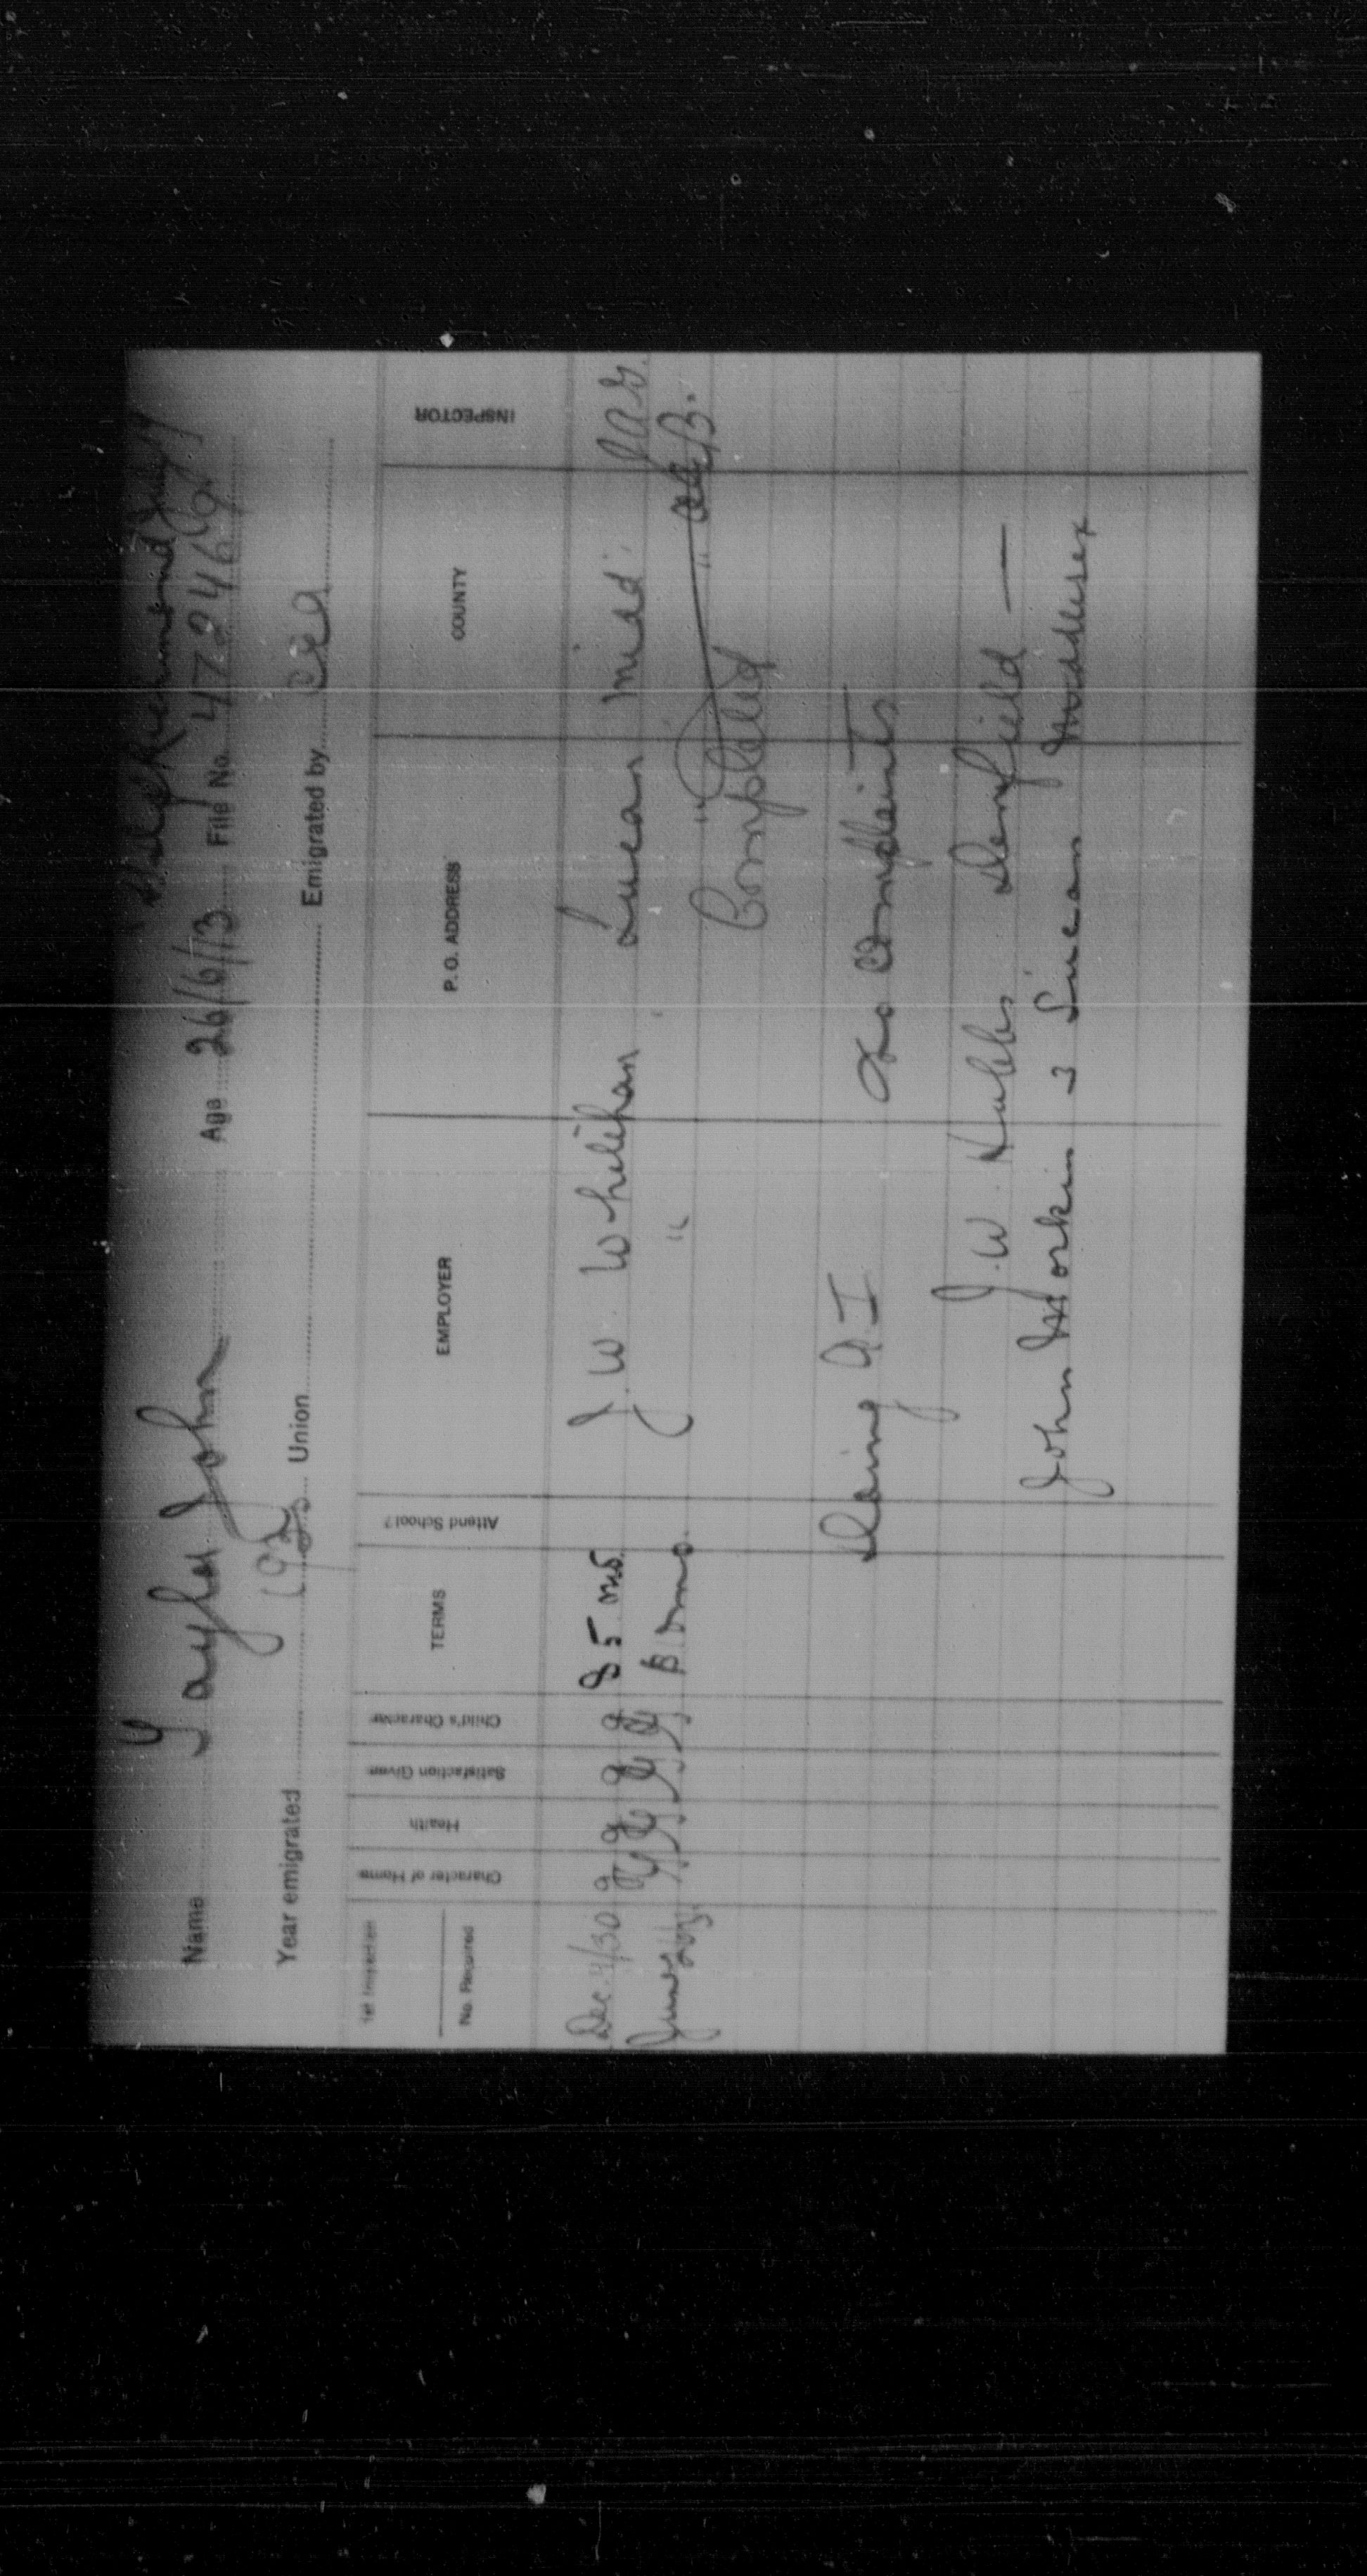 Richmond July
Name Taylor John Age 26/6/13 File No. 47246
Year emigrated 192 Union Emigrated by
1st Inspection
No. Required Character of Home Health Satisfaction Given Child's Character TERMS Attend School? EMPLOYER P. O. ADDRESS COUNTY INSPECTOR
Dec 4/30 g g g g 85 mos. J. W. Whilihan Lucan Midd.
June g g g g " "
Completed
Doing A.I no complaints
J. W. Hubbs Denfield —
John Morkin 3 Lucan Middlesex